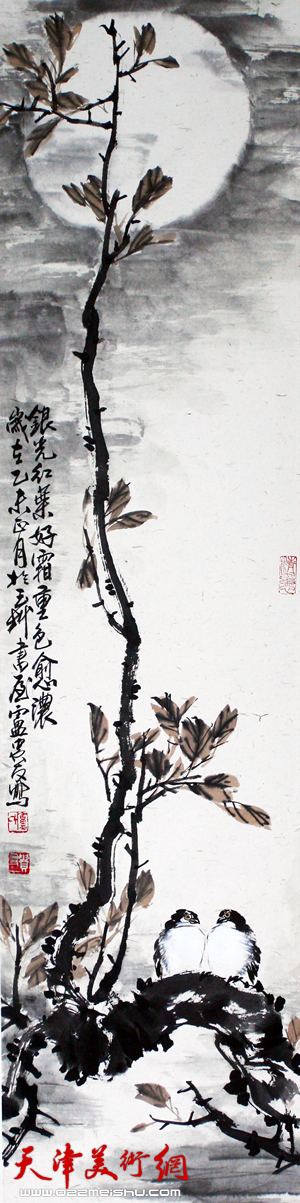 銀光红葉好霜重色愈濃
歲在乙未正月於
書屋
寫
天津美術網
www.022meishu.com